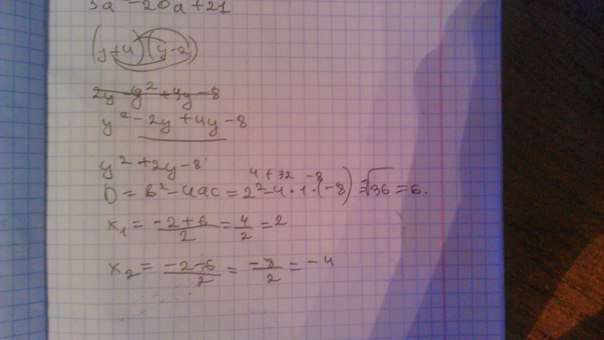 3a² - 20a + 21
(y+4)(y-2)
2y - y² + 4y - 8
y² - 2y + 4y - 8
y² + 2y - 8
4 + 32 - 8
D = b² - 4ac = 2² - 4 · 1 · (-8) = √36 = 6.
x₁ = (-2 + 6)/2 = 4/2 = 2
x₂ = (-2 - 6)/2 = -8/2 = -4